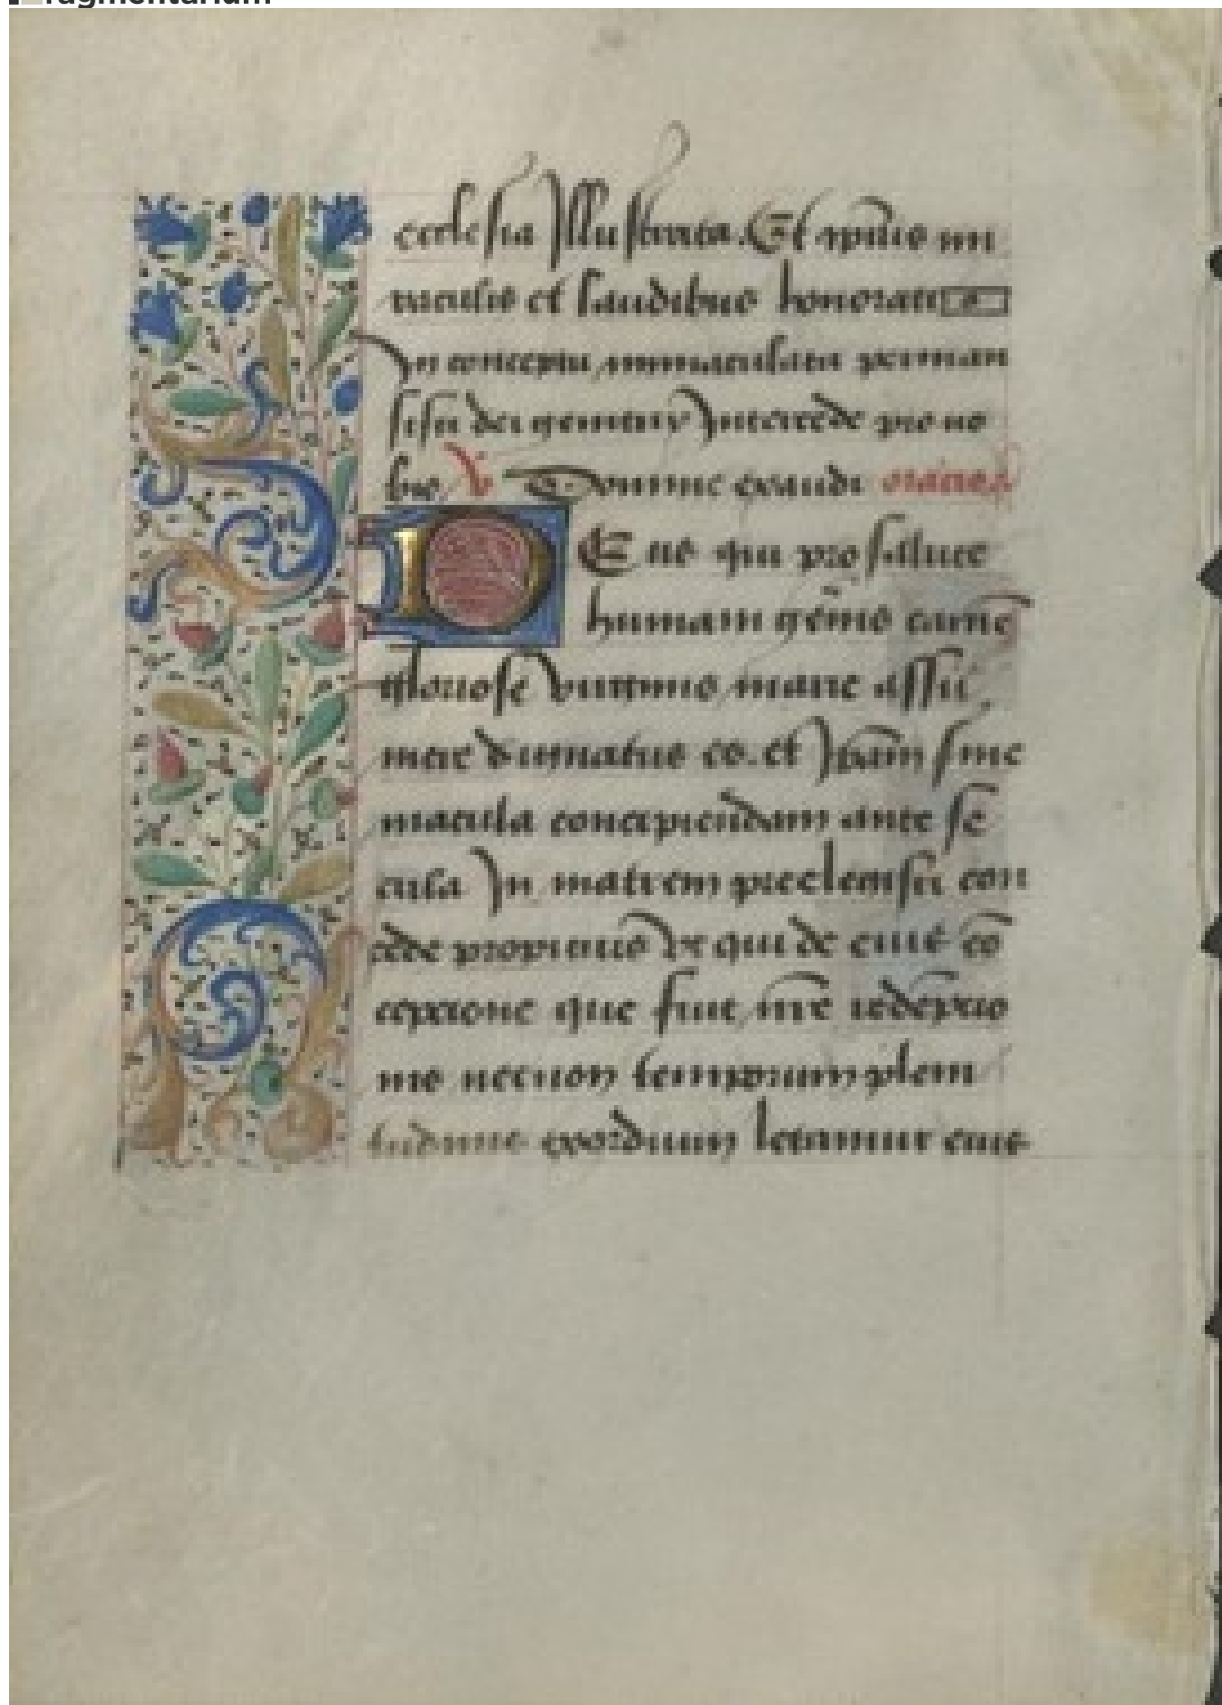 ragmentarium
ecclesia Illustrata. Et
raculis et laudibus honorata
In conceptu immaculata perman
sisti dei genitrix Intercede pro no
bis. Domine exaudi
DEus qui pro salute
humani gēnis carnē
gloriose virginis marie assu
mere dignatus es. et sine
macula concipiendam ante se
cula In matrem preelegisti con
cede propicius vt qui de eius cō
ceptione que fuit nrē redēptio
nis necnon temporum pleni
tudinis exordium letamur eius